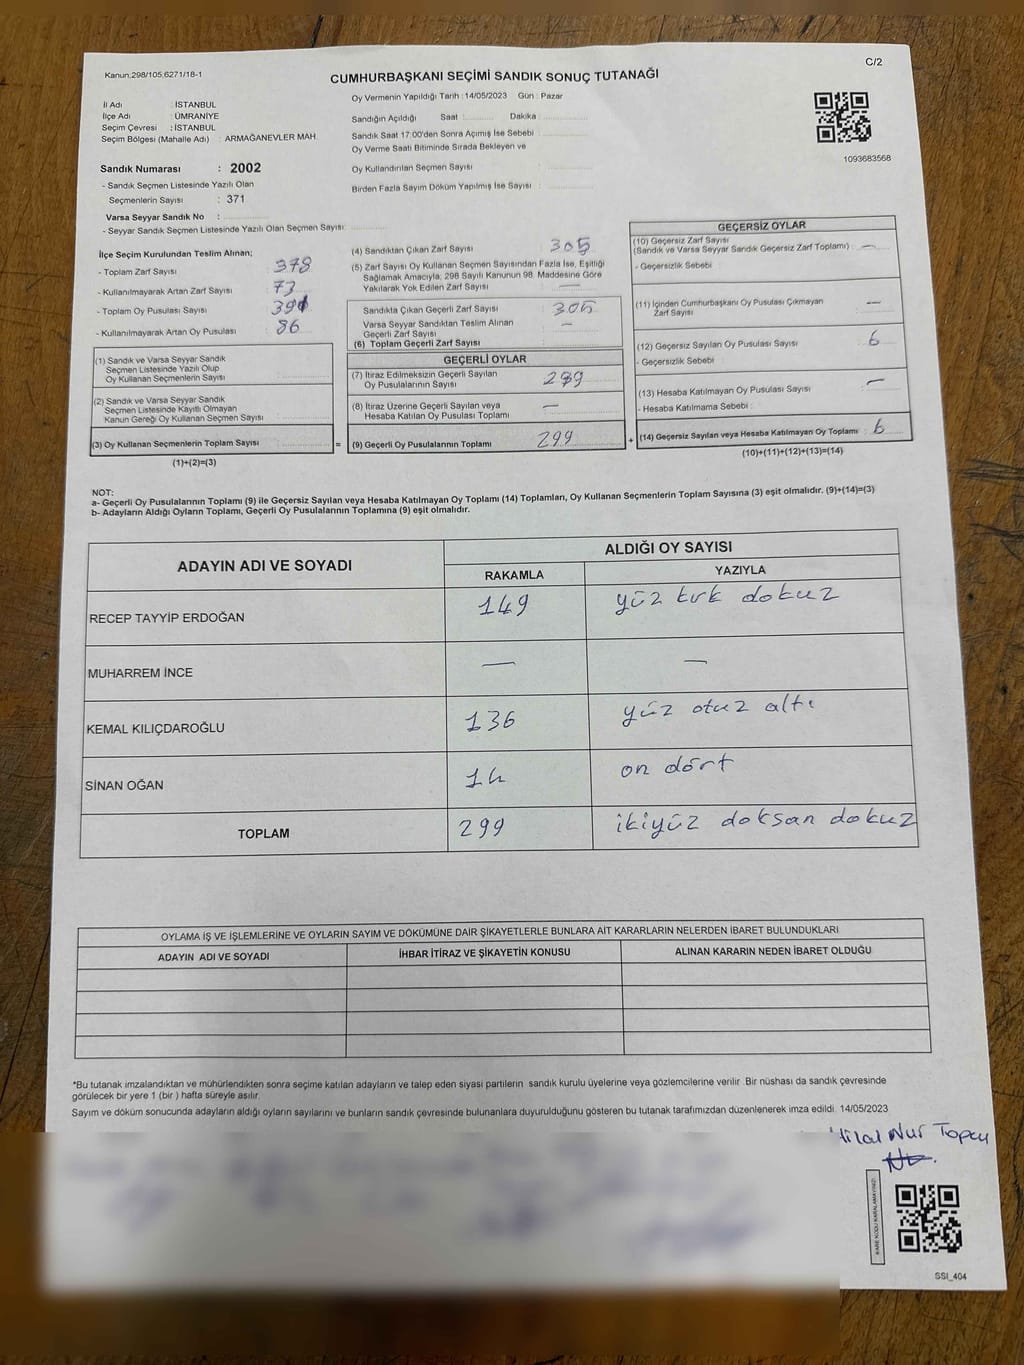 Kanun.298/105,6271/18-1
CUMHURBAŞKANI SEÇİMİ SANDIK SONUÇ TUTANAĞI
C/2
İl Adı : İSTANBUL
İlçe Adı : ÜMRANİYE
Seçim Çevresi : İSTANBUL
Seçim Bölgesi (Mahalle Adı) : ARMAĞANEVLER MAH.
Sandık Numarası : 2002
- Sandık Seçmen Listesinde Yazılı Olan
Seçmenlerin Sayısı : 371
Varsa Seyyar Sandık No :
- Seyyar Sandık Seçmen Listesinde Yazılı Olan Seçmen Sayısı:
Oy Vermenin Yapıldığı Tarih :14/05/2023 Gün : Pazar
Sandığın Açıldığı Saat Dakika
Sandık Saat 17:00'den Sonra Açımış İse Sebebi
Oy Verme Saati Bitiminde Sırada Bekleyen ve
Oy Kullandırılan Seçmen Sayısı
Birden Fazla Sayım Döküm Yapılmış İse Sayısı :
1093683568
İlçe Seçim Kurulundan Teslim Alınan;
- Toplam Zarf Sayısı : 378
- Kullanılmayarak Artan Zarf Sayısı : 73
- Toplam Oy Pusulası Sayısı : 391
- Kullanılmayarak Artan Oy Pusulası : 86
(1) Sandık ve Varsa Seyyar Sandık
Seçmen Listesinde Yazılı Olup
Oy Kullanan Seçmenlerin Sayısı
(2) Sandık ve Varsa Seyyar Sandık
Seçmen Listesinde Kayıtlı Olmayan
Kanun Gereği Oy Kullanan Seçmen Sayısı
(3) Oy Kullanan Seçmenlerin Toplam Sayısı =
(1)+(2)=(3)
(4) Sandıktan Çıkan Zarf Sayısı : 305
(5) Zarf Sayısı Oy Kullanan Seçmen Sayısından Fazla İse, Eşitliği
Sağlamak Amacıyla, 298 Sayılı Kanunun 98. Maddesine Göre
Yakılarak Yok Edilen Zarf Sayısı : —
Sandıkta Çıkan Geçerli Zarf Sayısı : 305
Varsa Seyyar Sandıktan Teslim Alınan
Geçerli Zarf Sayısı : —
(6) Toplam Geçerli Zarf Sayısı :
GEÇERLİ OYLAR
(7) İtiraz Edilmeksizin Geçerli Sayılan
Oy Pusulalarının Sayısı 299
(8) İtiraz Üzerine Geçerli Sayılan veya
Hesaba Katılan Oy Pusulası Toplamı —
(9) Geçerli Oy Pusulalarının Toplamı 299 +
GEÇERSİZ OYLAR
(10) Geçersiz Zarf Sayısı
(Sandık ve Varsa Seyyar Sandık Geçersiz Zarf Toplamı) : —
- Geçersizlik Sebebi :
(11) İçinden Cumhurbaşkanı Oy Pusulası Çıkmayan
Zarf Sayısı : —
(12) Geçersiz Sayılan Oy Pusulası Sayısı : 6
- Geçersizlik Sebebi :
(13) Hesaba Katılmayan Oy Pusulası Sayısı : —
- Hesaba Katılmama Sebebi :
(14) Geçersiz Sayılan veya Hesaba Katılmayan Oy Toplamı : 6
(10)+(11)+(12)+(13)=(14)
NOT:
a- Geçerli Oy Pusulalarının Toplamı (9) ile Geçersiz Sayılan veya Hesaba Katılmayan Oy Toplamı (14) Toplamları, Oy Kullanan Seçmenlerin Toplam Sayısına (3) eşit olmalıdır. (9)+(14)=(3)
b- Adayların Aldığı Oyların Toplamı, Geçerli Oy Pusulalarının Toplamına (9) eşit olmalıdır.
ADAYIN ADI VE SOYADI ALDIĞI OY SAYISI
RAKAMLA YAZIYLA
RECEP TAYYİP ERDOĞAN 149 yüz kırk dokuz
MUHARREM İNCE — —
KEMAL KILIÇDAROĞLU 136 yüz otuz altı
SİNAN OĞAN 14 on dört
TOPLAM 299 ikiyüz doksan dokuz
OYLAMA İŞ VE İŞLEMLERİNE VE OYLARIN SAYIM VE DÖKÜMÜNE DAİR ŞİKAYETLERLE BUNLARA AİT KARARLARIN NELERDEN İBARET BULUNDUKLARI
ADAYIN ADI VE SOYADI İHBAR İTİRAZ VE ŞİKAYETİN KONUSU ALINAN KARARIN NEDEN İBARET OLDUĞU
*Bu tutanak imzalandıktan ve mühürlendikten sonra seçime katılan adayların ve talep eden siyasi partilerin sandık kurulu üyelerine veya gözlemcilerine verilir. Bir nüshası da sandık çevresinde
görülecek bir yere 1 (bir ) hafta süreyle asılır.
Sayım ve döküm sonucunda adayların aldığı oyların sayılarını ve bunların sandık çevresinde bulunanlara duyurulduğunu gösteren bu tutanak tarafımızdan düzenlenerek imza edildi. 14/05/2023
Hilal Nur Topçu
SSI_404